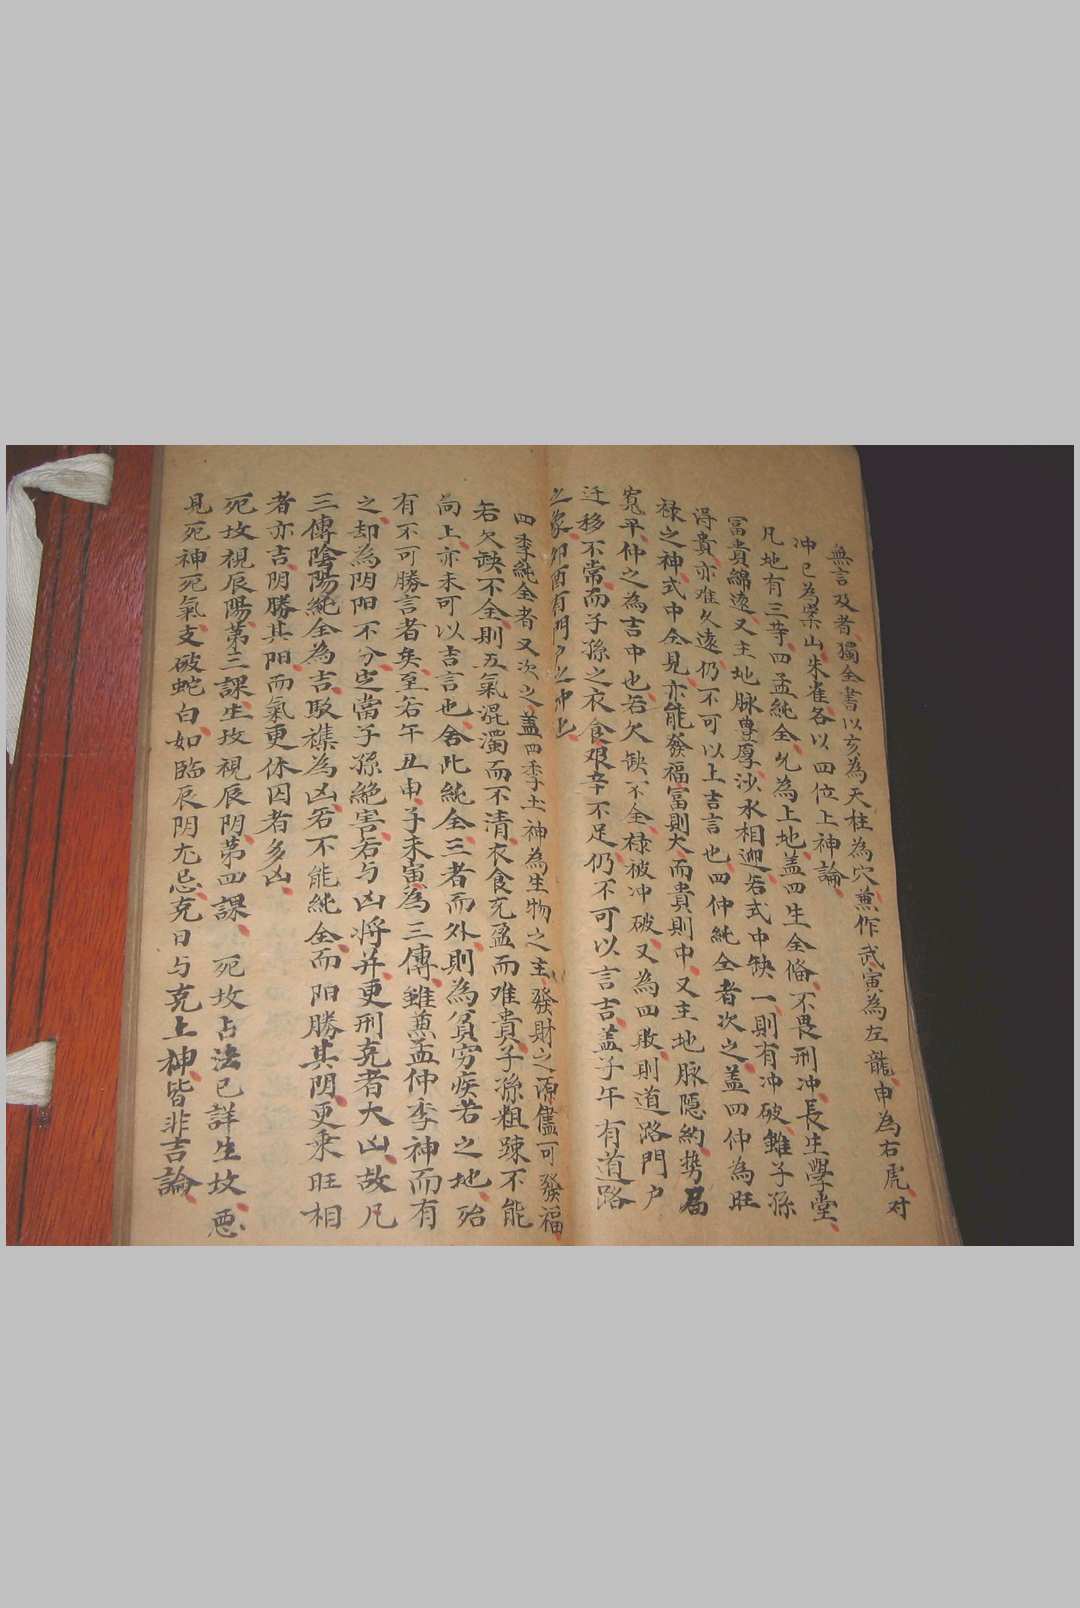 無言及者獨全書以亥為天柱為穴兼作武寅為左龍申為右虎对
冲巳為案山朱雀各以四位上神論
凡地有三等四孟純全允為上地盖四生全俻不畏刑冲長生學堂
冨貴綿遠又主地脉豊厚沙水相迎若式中缺一則有冲破雖子孫
得貴亦难久遠仍不可以上吉言也四仲純全者次之盖四仲為旺
禄之神式中全見亦能發福冨則大而貴則中又主地脉隠約势局
寬平仲之為吉中也若欠缺不全禄被冲破又為四敗則道路門户
迁移不常而子孫之衣食艰辛不足仍不可以言吉盖子午有道路
之象卯酉有門户之冲也
四季純全者又次之盖四季土神為生物之主發財之源儘可發福
若欠缺不全則五氣混濁而不清衣食充盈而难貴子孫粗踈不能
向上亦未可以吉言也舍此純全三者而外則為貧穷疾苦之地殆
有不可勝言者矣至若午丑申子未寅為三傳雖兼孟仲季神而有
之却為阴阳不分定當子孫絶害若与凶将并更刑克者大凶故凡
三傳陰陽純全為吉駁襍為凶若不能純全而阳勝其阴更乘旺相
者亦吉阴勝其阳而氣更休囚者多凶
死坟視辰陽第三課生坟視辰阴第四課 死坟占法已詳生坟悪
見死神死氣支破蛇白如臨辰阴尤忌克日与克上神皆非吉論